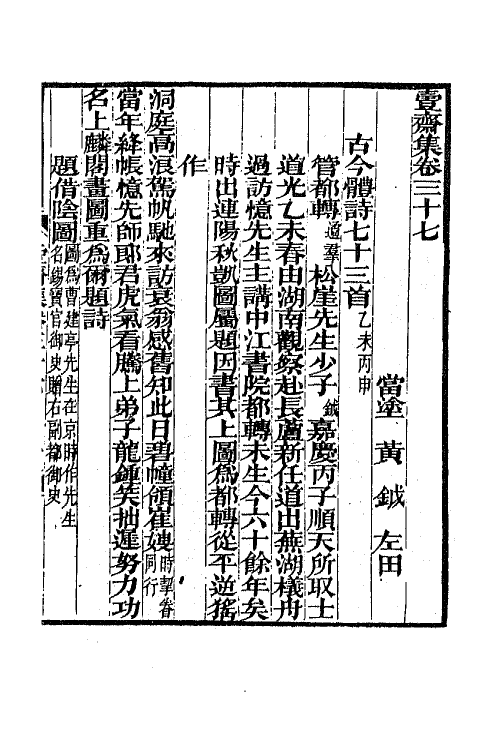 壹齋集卷三十七
當塗 黃鉞 左田
古今體詩七十三首乙未丙申
管都轉遵羣松崖先生少子鉞嘉慶丙子順天所取士
道光乙未春由湖南觀察赴長蘆新任道出蕪湖檥舟
過訪憶先生主講中江書院都轉未生今六十餘年矣
時出連陽秋凱圖屬題因書其上圖為都轉從平逆猺
作
洞庭高浪駕帆馳來訪衰翁感舊知此日碧幢領崔嫂時挈眷同行
當年絳帳憶先師郎君虎氣看騰上弟子龍鍾笑拙遲努力功
名上麟閣畫圖重為補題詩
題借陰圖圖為曹建亭先生在京時作先生名錫寶官御史贈右副都御史